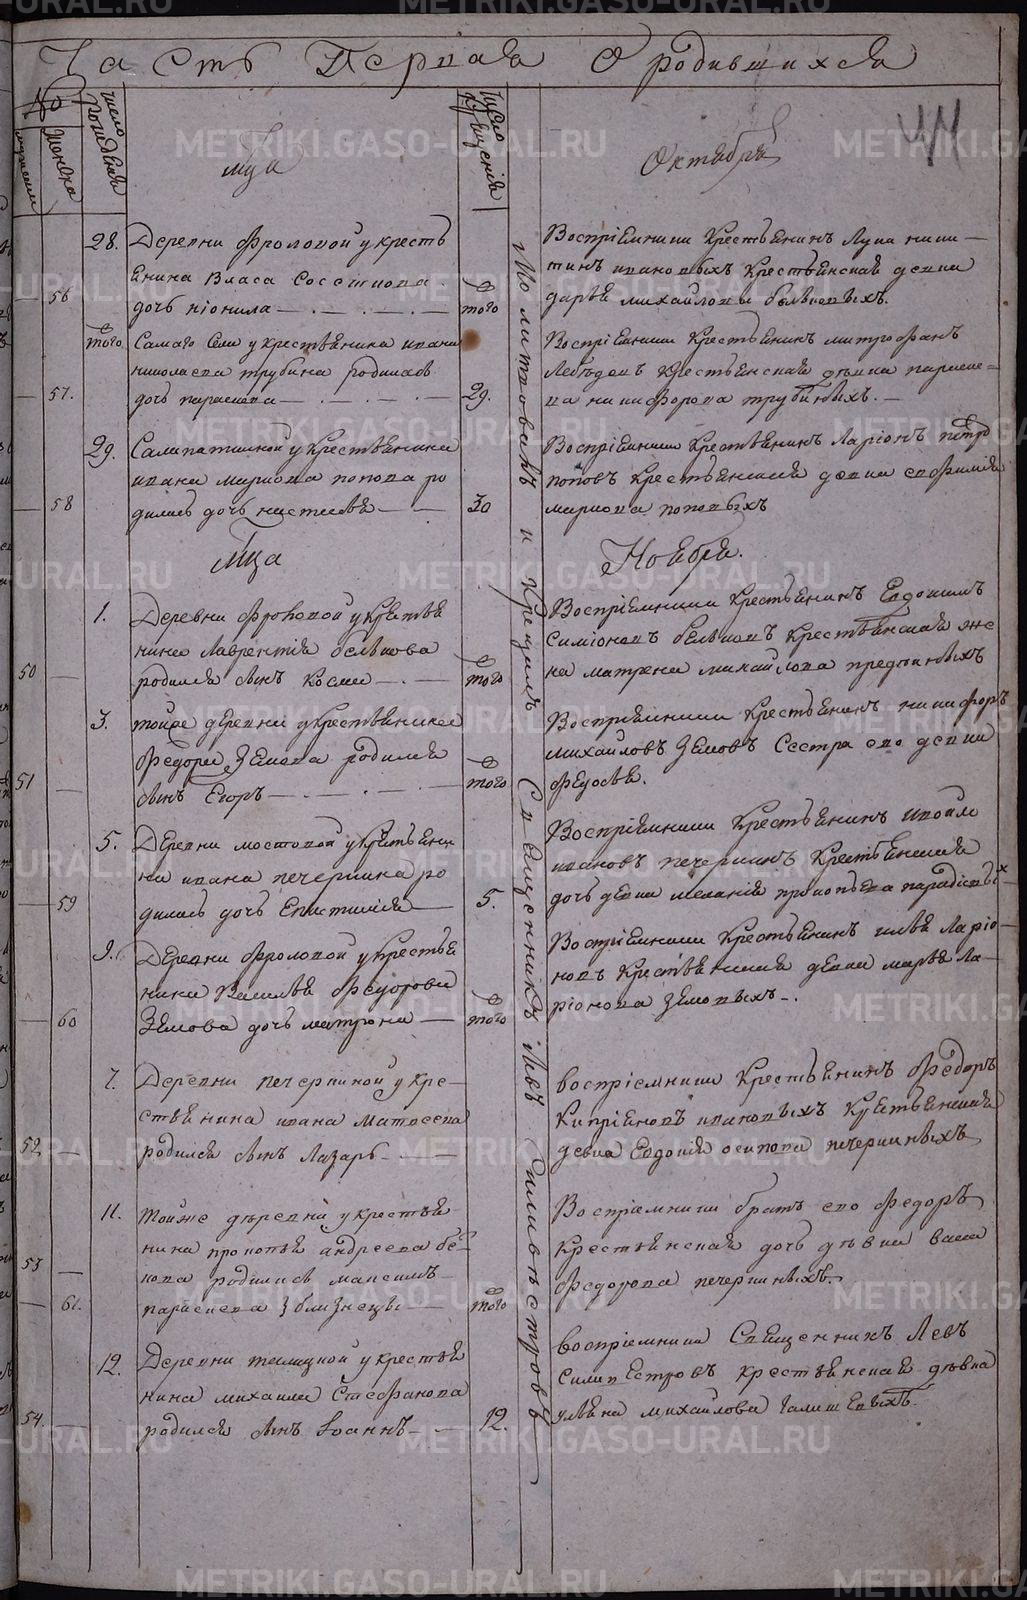 Часть Первая О родившихся
44
№
мужеска
женска
число рождения
число крещения
мца
Октября
28. Деревни Фроловой у кресть
янина Власа
56
дочь Нионила
того
Воспріемники Крестьянинъ Лука Ники
тинъ Ивановыхъ Крестьянская девка
Дарья Михайлова Бельковыхъ.
того Самаго Села у крестьянина Ивана
Николаева Трубина родилась
57. дочь Параскева
29.
Воспріемники Крестьянинъ Митрофанъ
Лебедевъ Крестьянская дѣвка Параске
ва Никифорова Трубиныхъ.
29. у Крестьянина
Ивана Маркова Попова ро
58 дилась дочь Настасья
30
Воспріемники Крестьянинъ Ларіонъ Петр
Поповъ Крестьянская девка Евфимія
Маркова Поповыхъ
мца
Ноября.
1. Деревни Фроловой у Крестья
нина Лаврентія Белькова
50 родился сынъ Косма
того
Воспріемники Крестьянинъ Евдокимъ
Симіоновъ Бельковъ Крестьянская же
на Матрена Михайлова
3. тойже деревни у Крестьянина
Федора Земова родился
51 сынъ Егоръ
того
Воспріемники Крестьянинъ Никифоръ
Михайловъ Земовъ Сестра ево девка
Федосья.
5. Деревни Мостовой у Крестьяни
на Ивана Печеркина ро
59 дилась дочь Епистимія
5.
Воспріемники Крестьянинъ
Ивановъ Печеркинъ Крестьянская
дочь девка Меланія Прокопьева
9. Деревни Фроловой у Крестья
нина Василья Федорова
60 Земова дочь Матрона
того
Воспріемники Крестьянинъ Илья Ларіо
новъ Крестьянская девка Марья Ла
ріонова Земовыхъ.
7. Деревни Печеркиной у Кре
стьянина Ивана Матвеева
52 родился сынъ Лазарь
Воспріемники Крестьянинъ Федоръ
Кипріяновъ Ивановыхъ Крестьянская
девка Евдокія Осипова Печеркиныхъ
11. Тойже деревни у Крестья
нина Прокопья Андреева Бе
53 кова родились Максимъ
61. Параскева близнецы
того
Воспріемники братъ ево Федоръ
Крестьянская дочь дѣвка Васса
Федорова Печеркиныхъ.
12. Деревни у Крестья
нина Михаила Стефанова
54. родился сынъ Іоаннъ
12.
Воспріемники Священникъ Левъ
Силивестровъ Крестьянская дѣвка
Ульяна Михайлова
Молитвовалъ и Крещалъ Священникъ Левъ Силивѣстровъ
METRIKI.GASO-URAL.RU